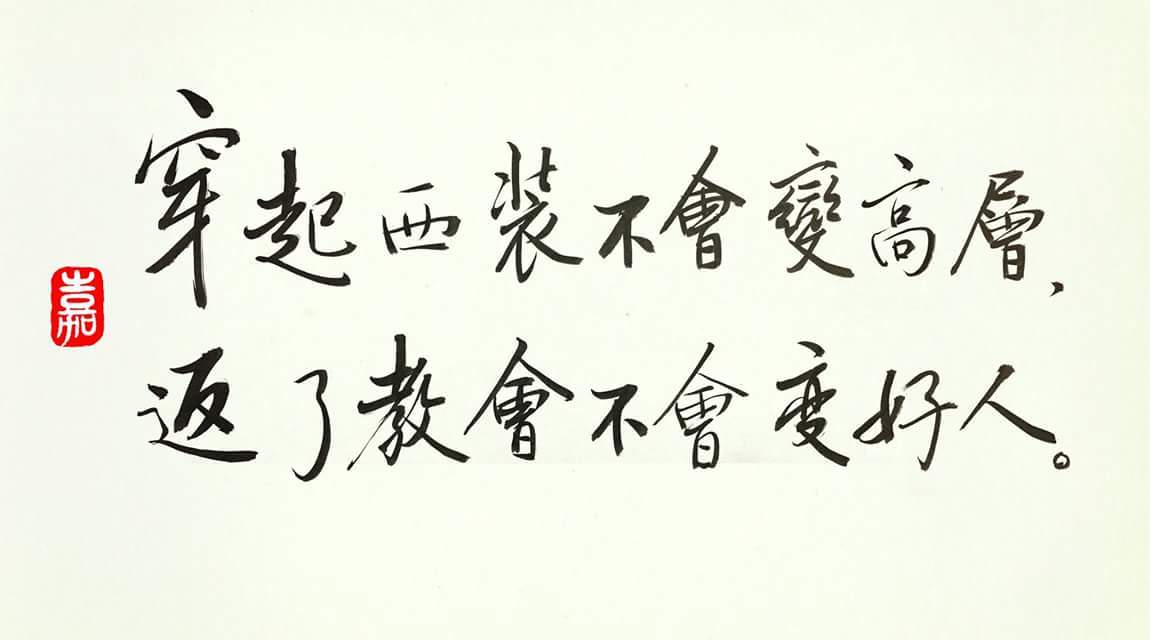 穿起西装不會變高層、
返了教會不會变好人。
嘉